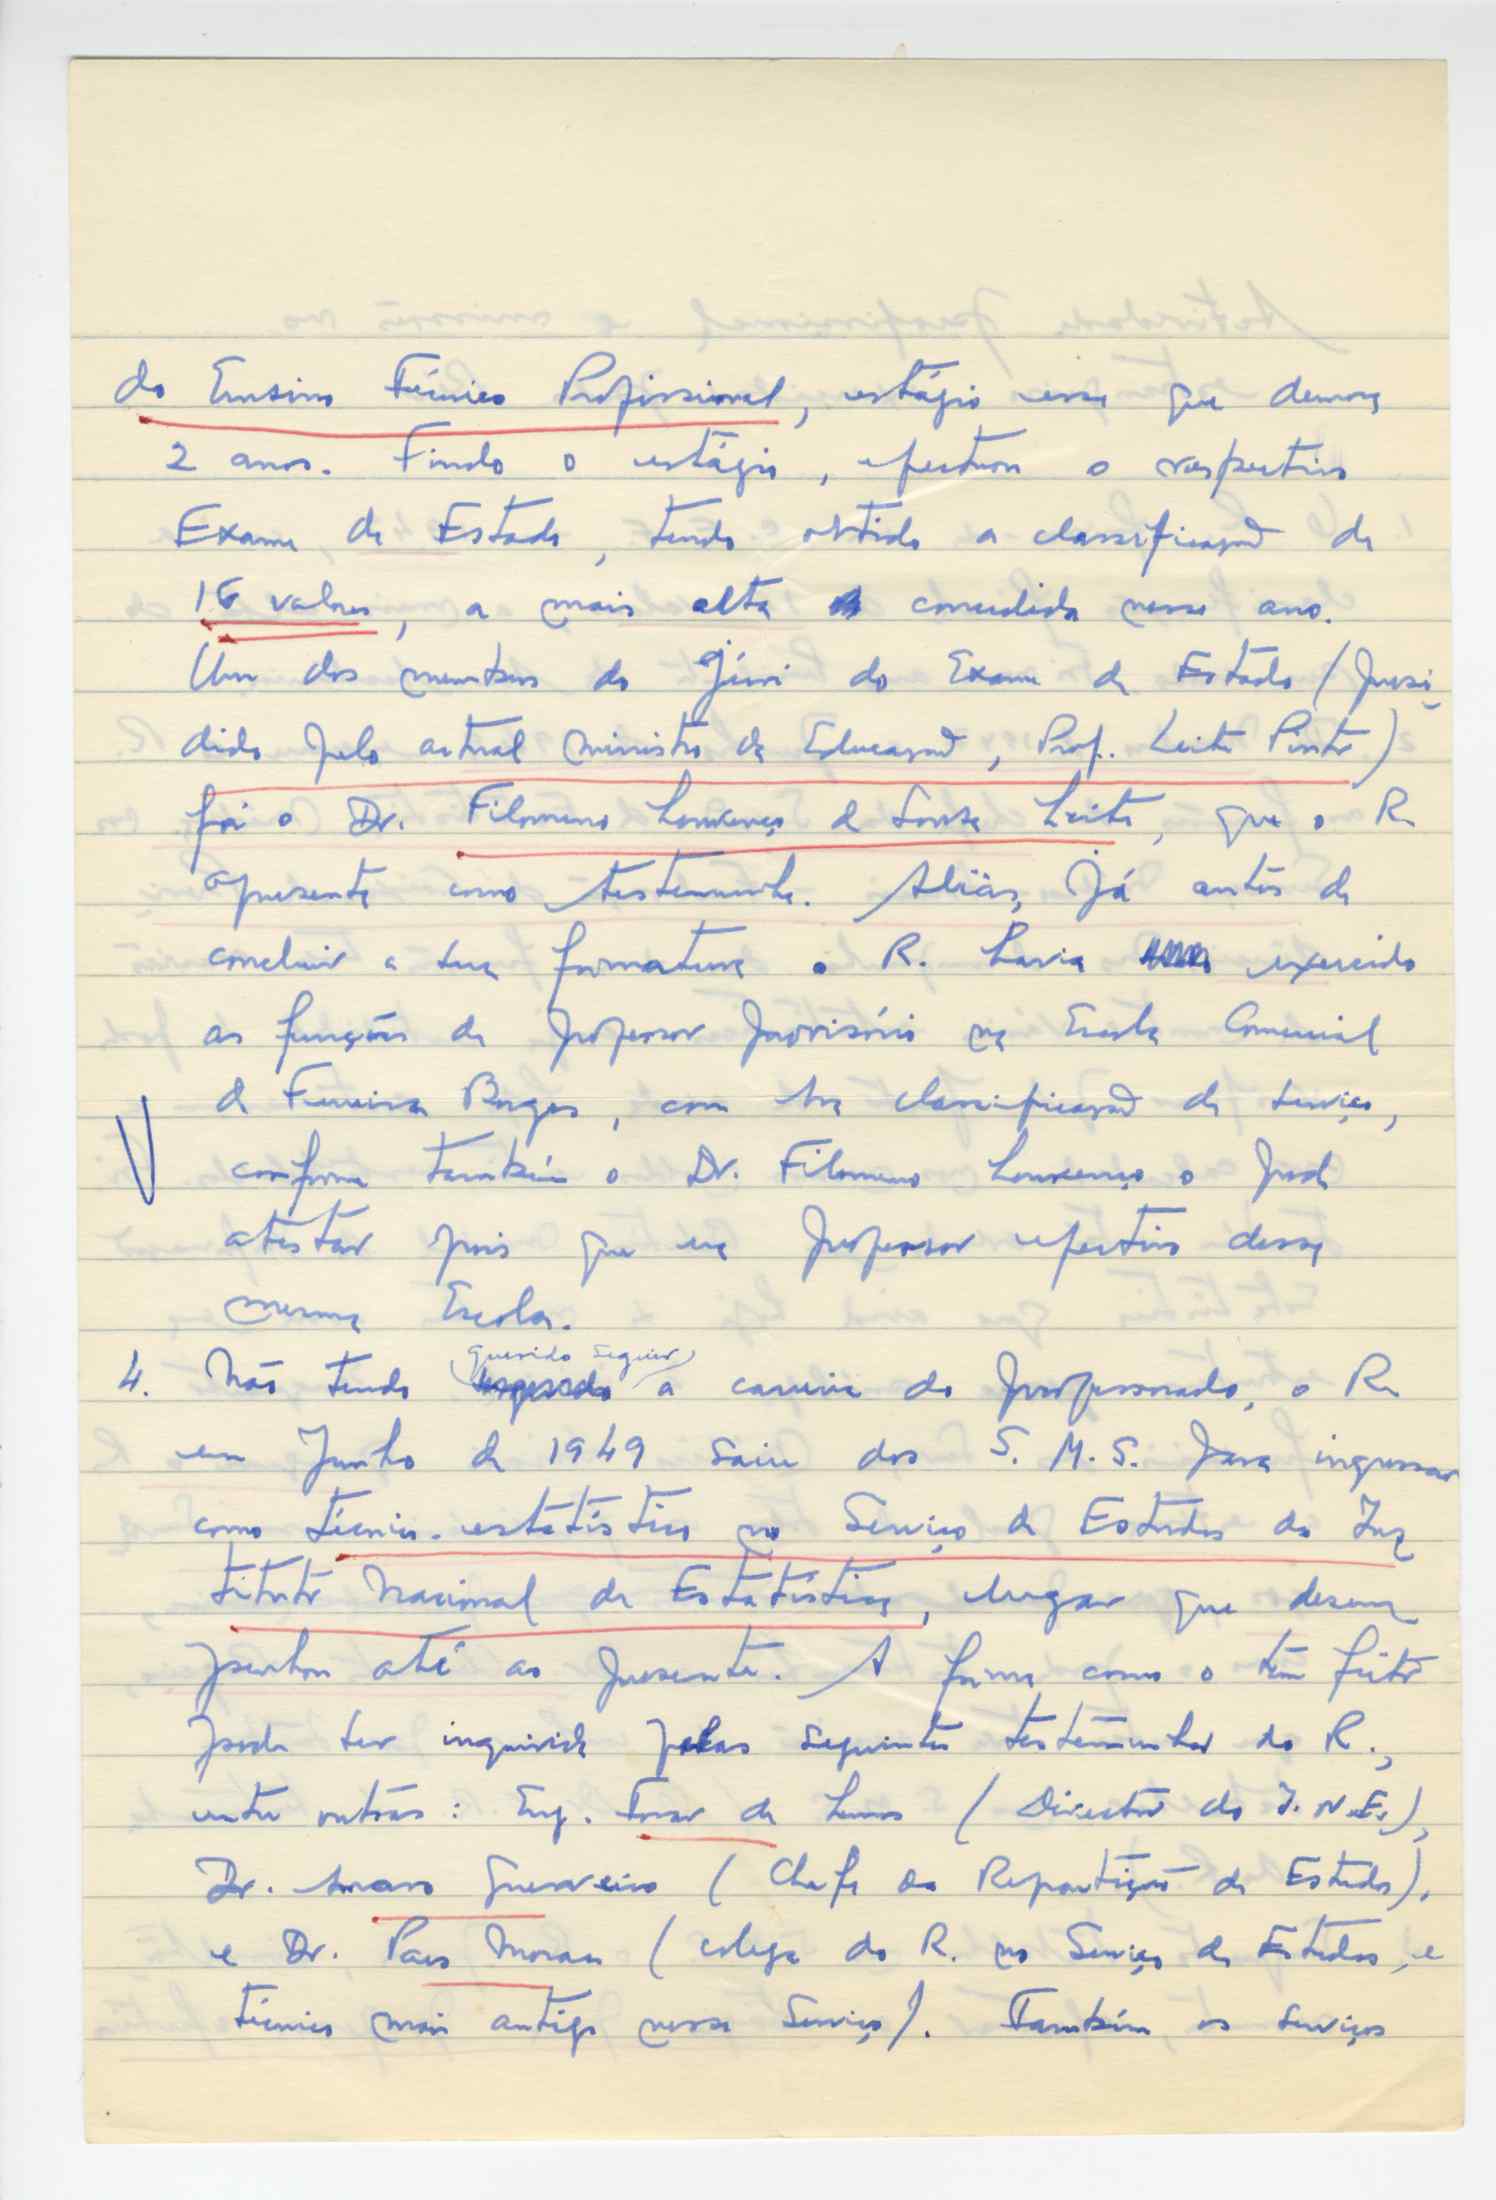 do Ensino Técnico Profissional, estágio esse que demora
2 anos. Findo o estágio, efectuou o respectivo
Exame de Estado, tendo obtido a classificação de
16 valores, a mais alta concedida nesse ano.
Um dos membros do Júri do Exame de Estado (presi-
dido pelo actual Ministro da Educação, Prof. Leite Pinto)
foi o Dr. Filomeno Lourenço de Sousa Leite, que o R.
apresenta como testemunha. Aliás, já antes de
concluir a sua formatura o R. havia exercido
as funções de professor provisório na Escola Comercial
de Ferreira Borges, com boa classificação de serviço,
conforme também o Dr. Filomeno Lourenço o pode
atestar pois que era professor efectivo dessa
mesma Escola.
querido seguir
4. Não tendo a carreira do professorado, o R.
em Junho de 1949 saiu dos S. M. S. para ingressar
como técnico-estatístico no Serviço de Estudos do Ins
tituto Nacional de Estatística, lugar que desem
penhou até ao presente. A forma como o tem feito
pode ser inquirida pelas seguintes testemunhas do R.,
entre outras: Eng. Tovar de Lemos (Director do I.N.E.),
Dr. Amaro Guerreiro (Chefe da Repartição de Estudos),
e Dr. Paes Morais (colega do R. no Serviço de Estudos, e
técnico mais antigo nesse Serviço). Também os serviços